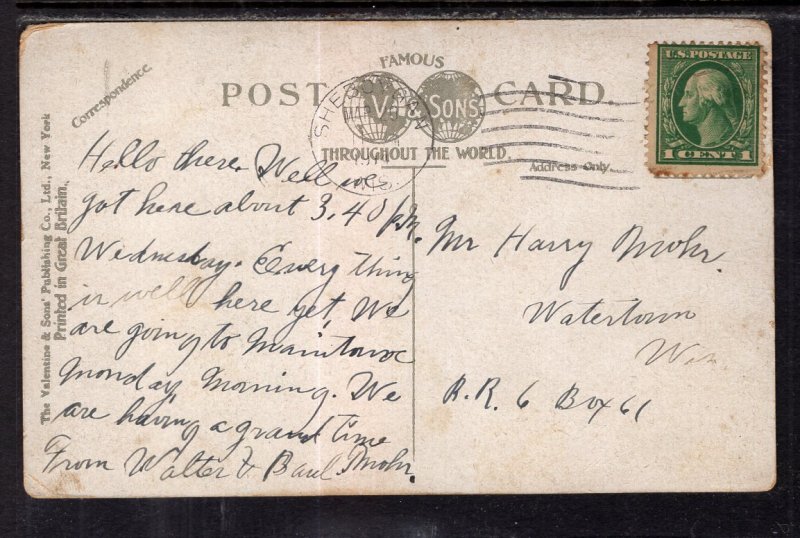 Correspondence.
FAMOUS
POST CARD.
V. & SONS
THROUGHOUT THE WORLD.
Address Only.
SHEBOYGAN
WIS.
U.S. POSTAGE
1 CENT 1
The Valentine & Sons' Publishing Co., Ltd., New York
Printed in Great Britain.
Hello there. Well we
got here about 3.40 P.M.
Wednesday. Everything
is well here yet, We
are going to Manitowoc
Monday, Morning. We
are having a grand time
From Walter & Mohr.
Mr Harry Mohr.
Watertown
Wis
R.R. 6 Box 61